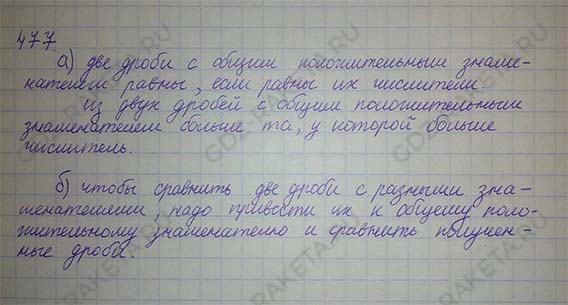 477
а) две дроби с общим положительным знаме-
нателем равны, если равны их числители.
из двух дробей с общим положительным
знаменателем больше та, у которой больше
числитель.
б) чтобы сравнить две дроби с разными зна-
менателями, надо привести их к общему поло-
жительному знаменателю и сравнить получен-
ные дроби.
GDZ-RAKETA.RU